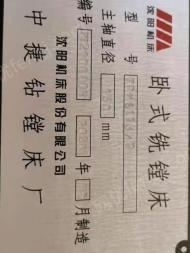 沈阳机床
卧式铣镗床
型号
主轴直径 mm
编号 年 月制造
沈阳机床股份有限公司
中捷钻镗床厂